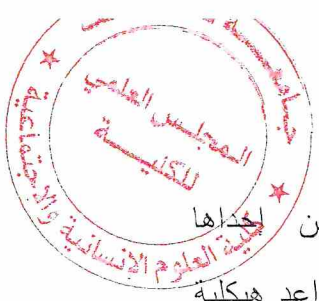 المجلس العلمي
للكليــة
كلية العلوم الإنسانية والاجتماعية
ن احداها
اعد هيكلية